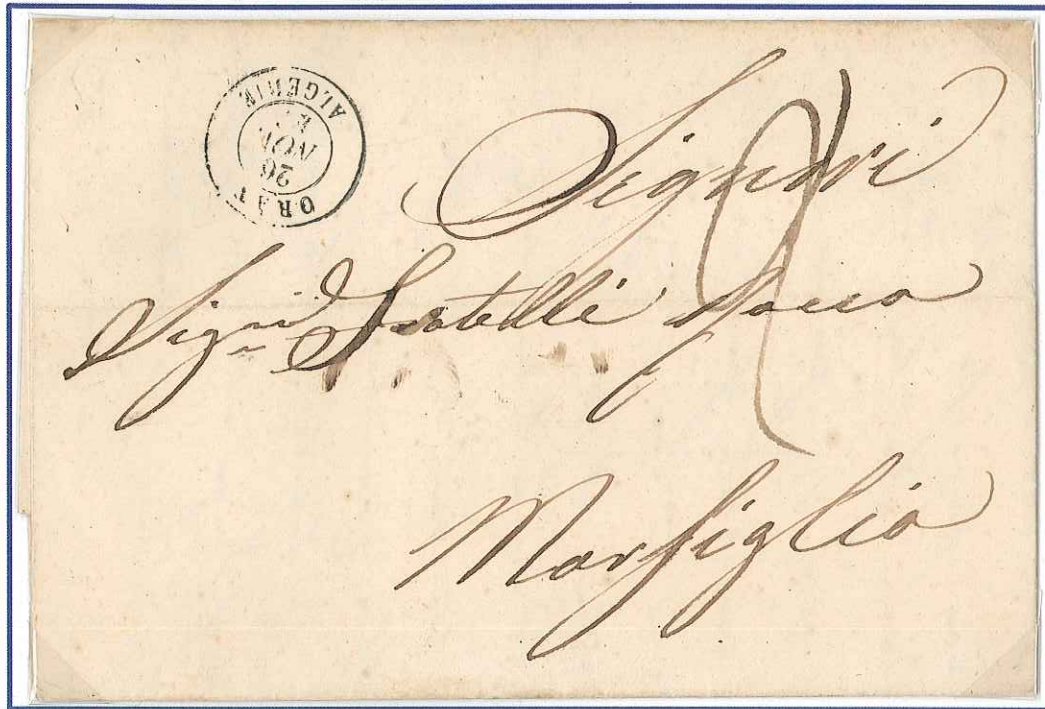 ORAN
20
NOV.
ALGÉRIE
Signori
Sig.ri Fratelli Rocca
Marsiglia